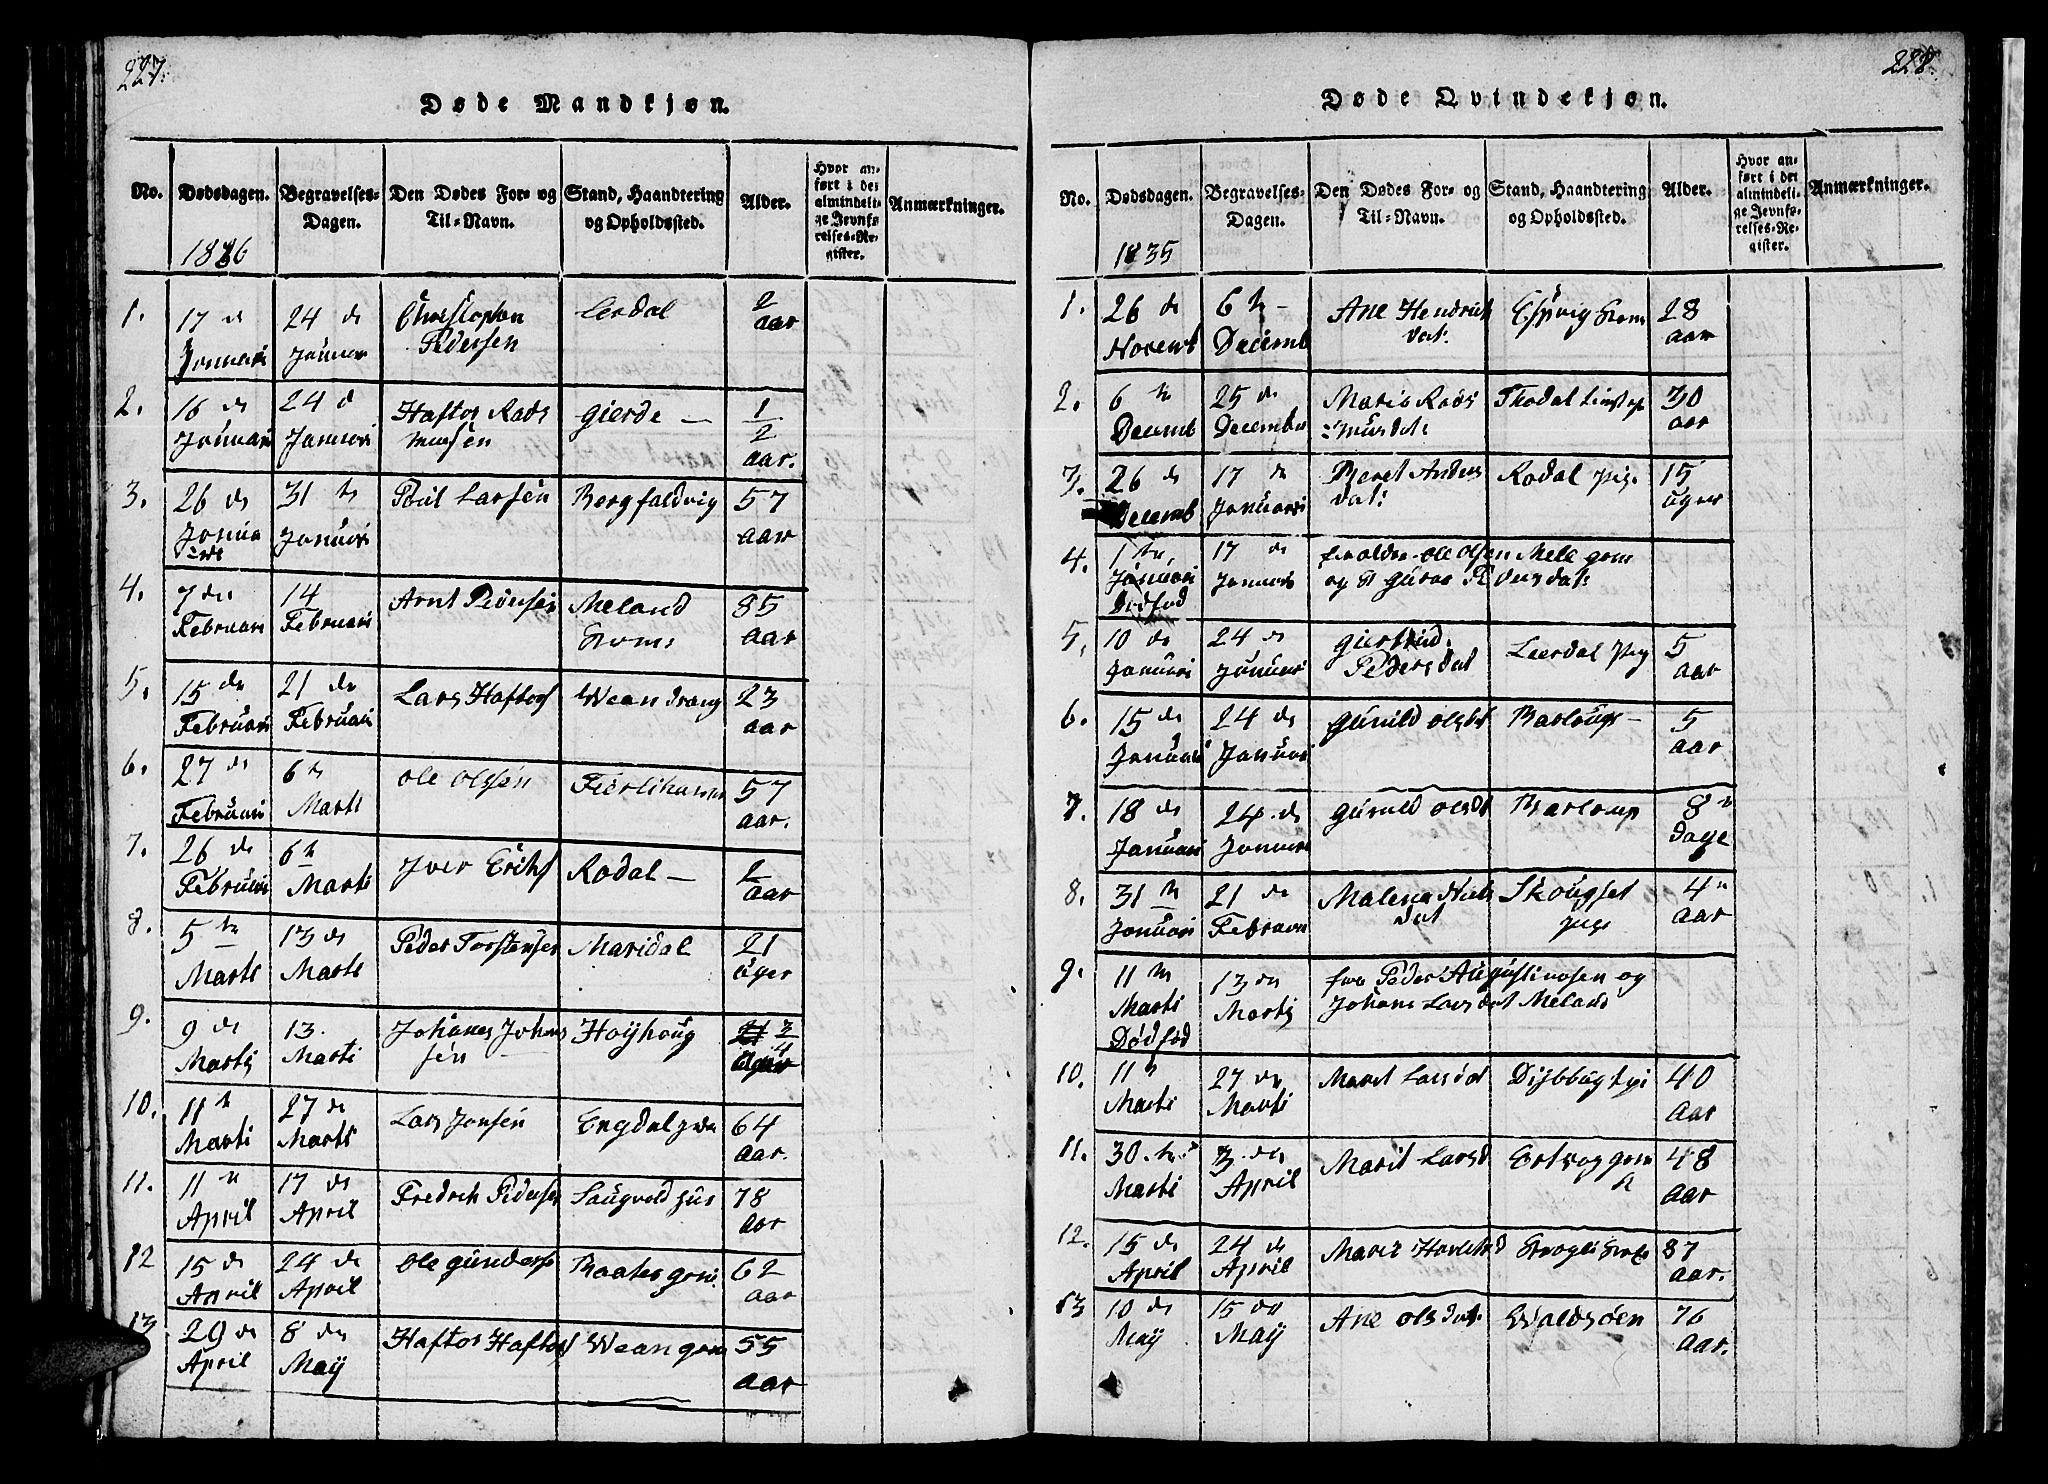 227.
Døde Mandkjøn.
No.
Dødsdagen.
Begravelses-
Dagen.
Den Dødes For- og
Til-Navn.
Stand, Haandtering
og Opholdssted.
Alder.
Hvor an-
ført i det
almindeli-
ge Jevnfø-
relses-Re-
gister.
Anmærkninger.
1836
1.
17 de
Januari
24 de
Januar
Christophen
Pedersen
Lerdal
2
aar
2.
16 de
Januari
24 d
Januari
Haftor Rads
musen
Gierde —
1/2
aar.
3.
26 de
31 te
Januari
Poul Larsen
Bergfaldvig
57
aar
4.
7 de
Februari
14
Februari
Arnt Pedersen
Meland
85
aar
5.
15 de
Februari
21 de
Februari
Lars Haftors
Wean
23
aar
6.
27 de
Februari
6 te
Marti
Ole Olsen
57
aar.
7.
26 de
Februari
6 te
Marti
Iver Eriks
Rodal —
aar
8.
5 te
Marti
13 de
Marti
Peder Torstensen
Maridal
21
uger
9.
9 de
Martij
13.
Marti
Johanes Johans
sen
Høyhoug
10.
11 te
Marti
27 de
Marti
Lars Jonsen
Engdal
64
aar.
11.
11 te
April
17 de
April
Fredrik Pedersen
78
aar
12
15 de
April
24 de
April
Ole Gunders
62
aar
13
29 de
April
8 de
Maÿ
Haftor Haftors
Wean
55
aar
228.
Døde Qvindekjøn.
No.
Dødsdagen.
Begravelses-
Dagen.
Den Dødes For- og
Til-Navn.
Stand, Haandtering
og Opholdssted.
Alder.
Hvor an-
ført i det
almindeli-
ge Jevnfø-
relses-Re-
gister.
Anmærkninger.
1835
1.
26 de
Novemb
6 te
Decemb
Ane Hendrik
dat:
Espvig
28
aar
2.
6 te
Decemb
25 de
December
Marit Ras
musdat:
30
aar
3.
26 de
Decemb
17 de
Januari
Beret Anders
dat:
Rodal pige
15
uger
4.
1 te
Januari
Dødfød
17 de
Januari
Ole Olsen Mele
og Guroe Pedersdat:
5.
10 de
Januari
24 de
Januari
Giertrud
Pedersdat
Leerdal pig
5
aar
6.
15 de
Januari
24 de
Januari
Gunild Olsdt
5
aar
7.
18 de
Januari
24 de
Januari
Gunild Olsdt
8
dage
8.
31 te
Januari
21 de
Februari
Malena Niels
dat
Skougset
pige
4
aar
9.
11 te
Marti
Dødfød
13 de
Martij
Peder Augustinusen og
Johane Larsdat Meland
10.
11 te
Marti
27 de
Marti
Marit Larsdat
40
aar
11.
30 te
Marti
3 de
April
Marit Larsd
Ertvog
48
aar
12.
15 de
April
24 de
April
87
aar.
13
10 de
Maÿ
15 de
Maÿ
Ane Olsdat
Waldsøen
76
aar.